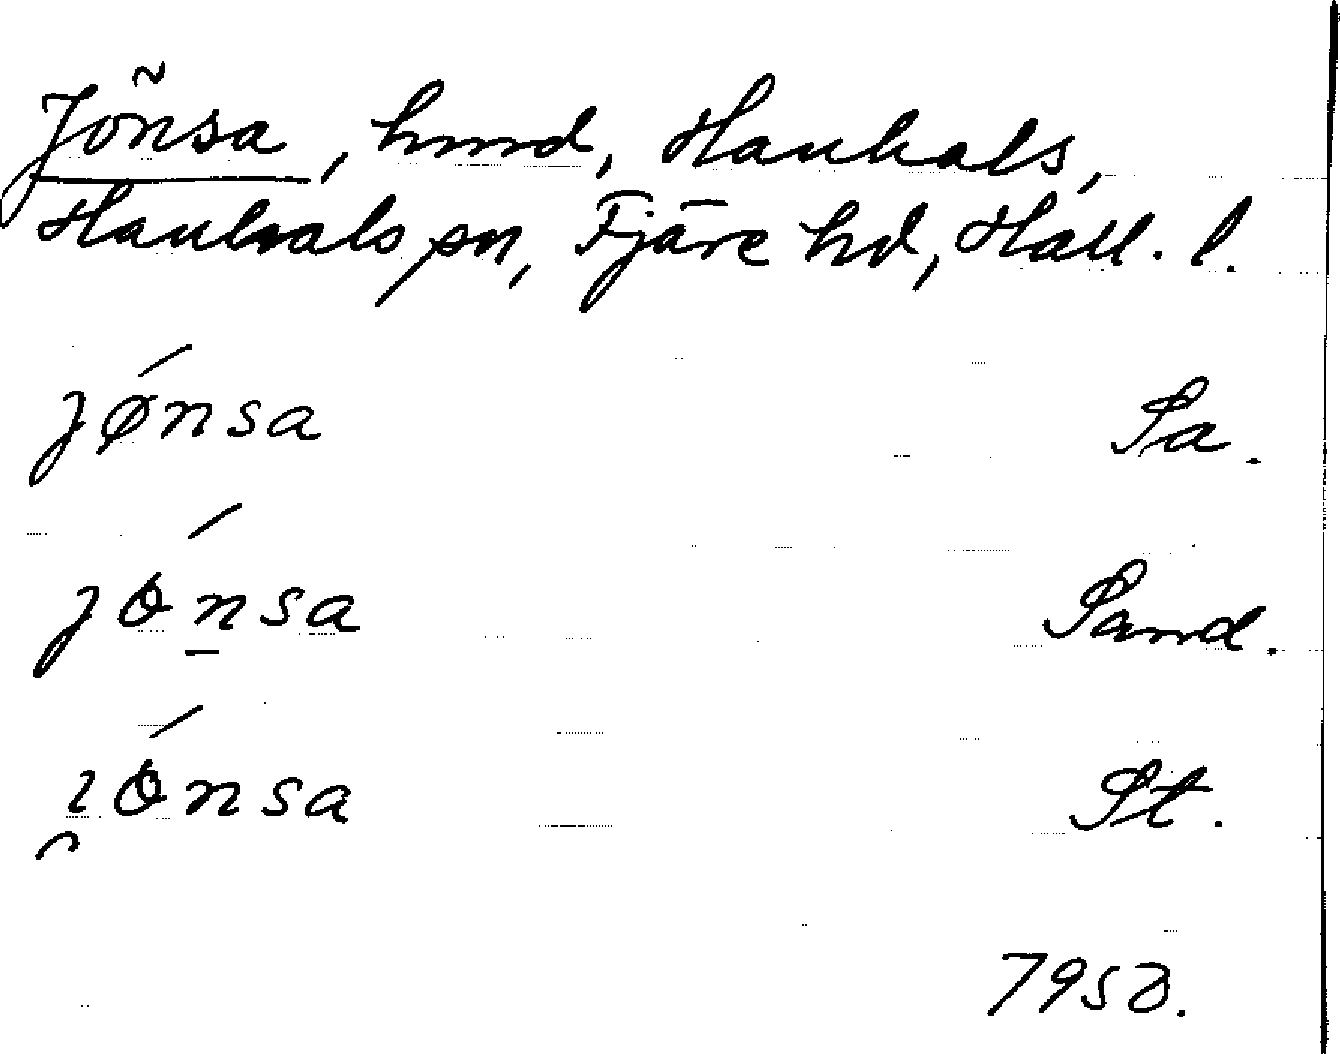 Jönsa, hmd, Hanhals,
Hanhals sn, Fjäre hd, Hall. l.
jǿnsa Sa.
jȯ́nsa Sand.
ı̯ȯ́nsa St.